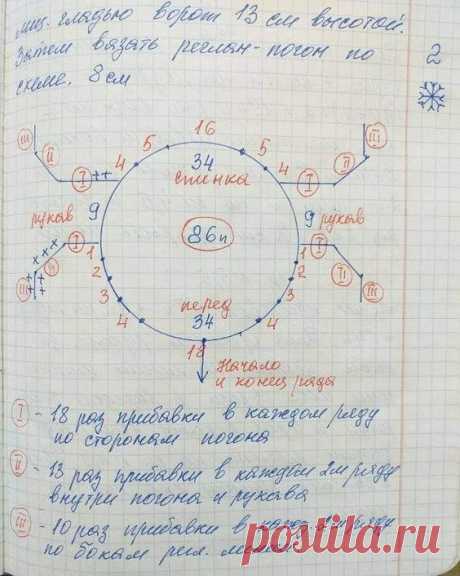 лиц. гладью ворот 13 см высотой.
Затем вязать реглан-погон по
схеме. 8 см
2
16
5 5
4 4
34
спинка
III II I
I II III
рукав 9
9 рукав
86п
I
I
1 1
2 2
3 3
4 4
II III
II III
перед
34
18
Начало
и конец ряда
I - 18 раз прибавки в каждом ряду
по сторонам погона
II - 13 раз прибавки в каждом 2м ряду
внутри погона и рукава
III - 10 раз прибавки в кажд. 2м ряду
по бокам рег. линий
postila.ru